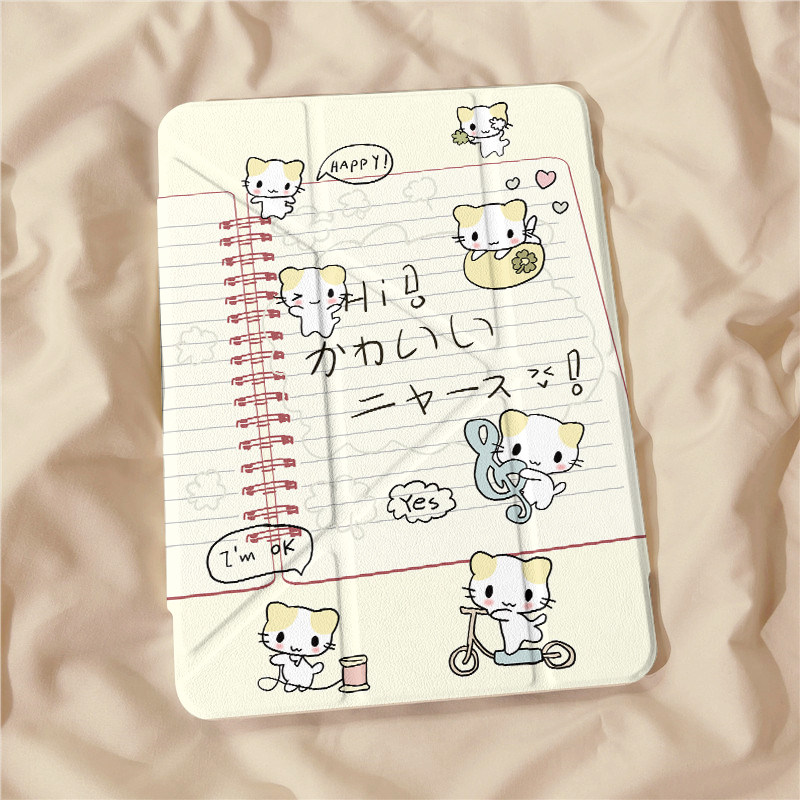 HAPPY!
Hi!
かわいい
ニャース!
Yes
I'm OK